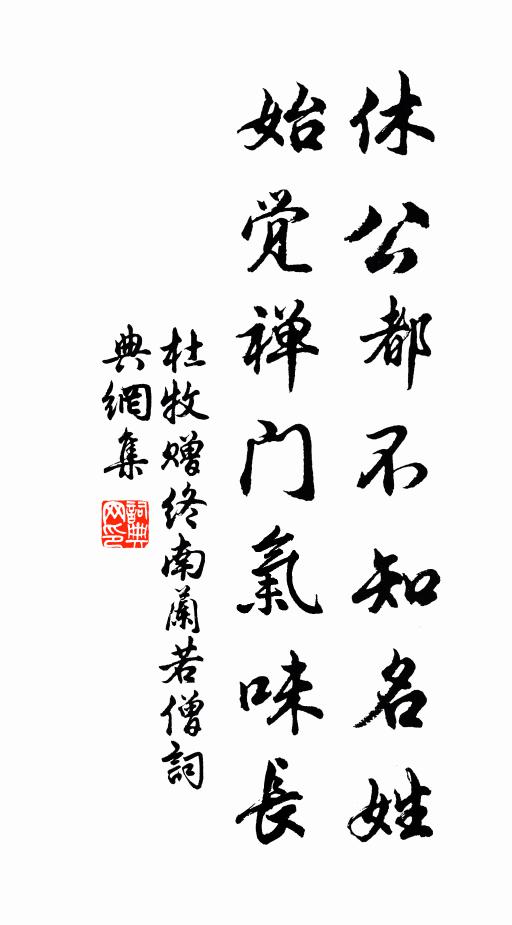 休公都不知名姓
始觉禅门氣味長
杜牧赠终南蘭若僧詞
典網集
詞典
网印